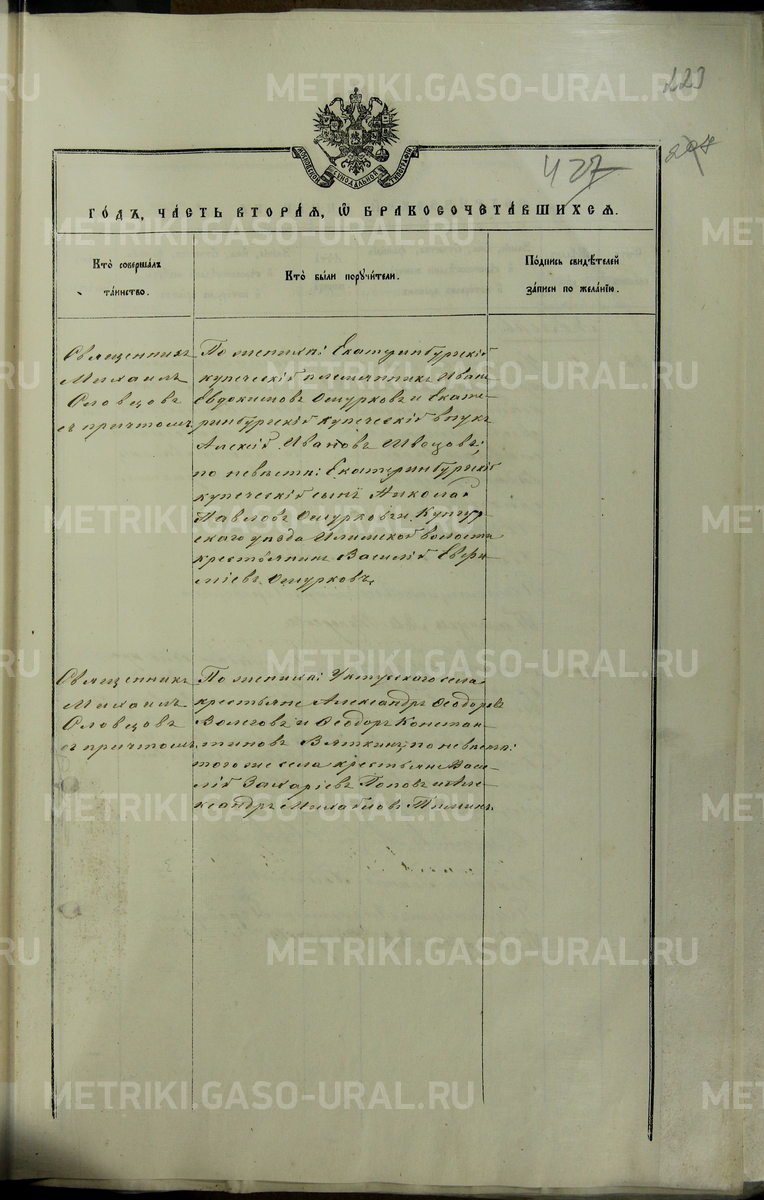 223
298
427
МОСКОВСКОЙ СѴНОДАЛЬНОЙ ТИПОГРАФІИ
ГО́ДЪ, ЧА́СТЬ ВТОРА́Я, Ѡ҆ БРАКОСОЧЕТА́ВШИХСЯ.
Кто̀ соверша́лъ
та́инство.
Кто̀ бы́ли поручи́тели.
По́дпись свидѣ́телей
за́писи по жела́нію.
Священникъ
Михаилъ
Словцовъ
съ причтомъ
По женихѣ: Екатеринбургскій
купеческій племянникъ Иванъ
Евдокимовъ Ошурковъ и Екате-
ринбургскій купеческій внукъ
Алексій Ивановъ
по невѣстѣ: Екатеринбургскій
купеческій сынъ Николай
Павловъ Ошурковъ и Кунгур-
скаго уѣзда Илимской волости
крестьянинъ Василій Евфи-
міевъ Ошурковъ.
Священникъ
Михаилъ
Словцовъ
съ причтомъ
По женихѣ: Уктусскаго села
крестьяне Александръ Ѳеодоровъ
Волеговъ и Ѳеодоръ Констан-
тиновъ Вяткинъ; по невѣстѣ:
того же села крестьяне Васи-
лій Захаріевъ Поповъ и Але-
ксандръ Михайловъ
METRIKI.GASO-URAL.RU